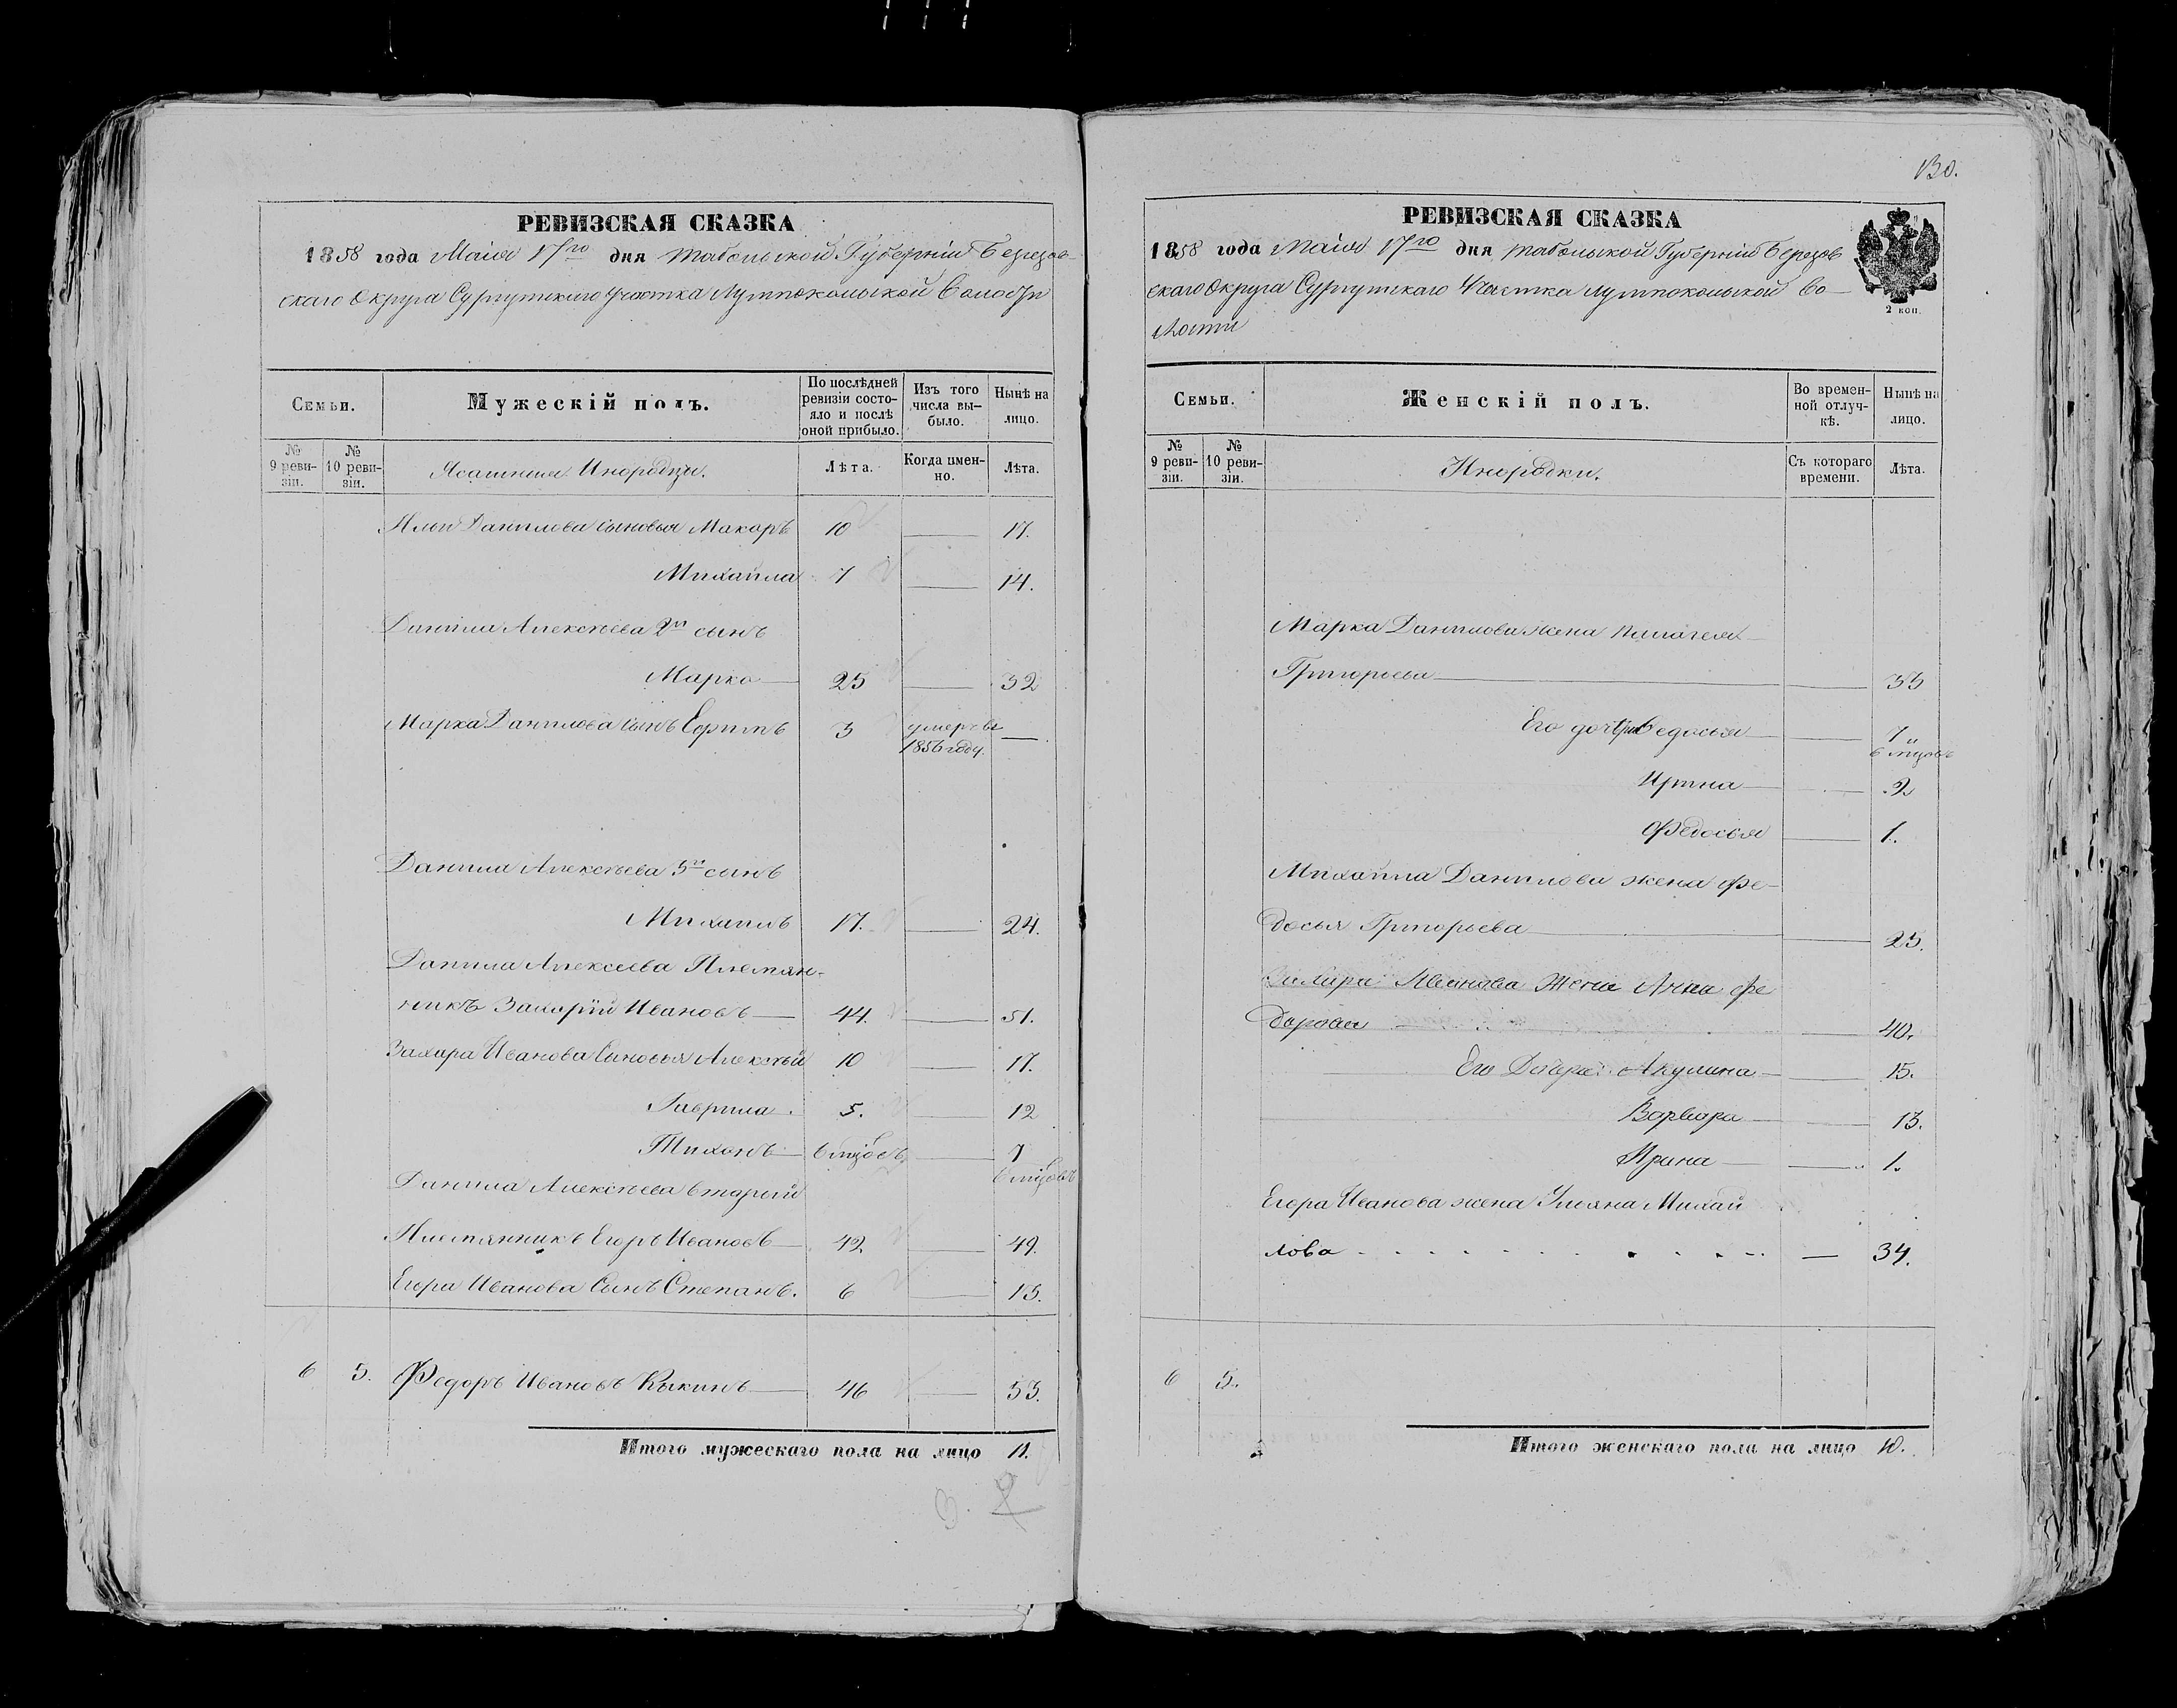 130.
РЕВИЗСКАЯ СКАЗКА
1858 года Маія 17го дня Тобольской Губерніи Березов-
скаго Округа Сургутскаго Участка Лумпокольской Волости
Семьи.
Мужескій полъ.
По послѣдней ревизіи состояло и послѣ оной прибыло.
Изъ того числа вы-было.
Нынѣ на лицо.
№ 9 реви-зіи.
№ 10 реви-зіи.
Ясашныя Инородцы.
Лѣта.
Когда имен-но.
Лѣта.
Ильи Данилова сыновья Макаръ 10 — 17.
Михайла 7 — 14.
Данила Алексѣева 2й сынъ
Марко — 25 — 32
Марка Данилова сынъ Ефимъ 3 умеръ въ 1856 году. —
Данила Алексѣева 3й сынъ
Михаилъ 17. — 24.
Данила Алексѣева Племян-
никъ Захарій Ивановъ — 44. — 51.
Захара Иванова Сыновья Алексѣй 10 — 17.
Гаврила. 5. — 12
Тихонъ — 6 мѣцовъ — 7 6 мѣцовъ
Данила Алексѣева вторый
Племянникъ Егоръ Ивановъ — 42. — 49.
Егора Иванова Сынъ Степанъ. 6 — 13.
6 5. Федоръ Ивановъ Кыкинъ — 46 — 53.
Итого мужескаго пола на лицо 11.
РЕВИЗСКАЯ СКАЗКА
1858 года Маія 17го дня Тобольской Губерніи Березов
скаго Округа Сургутскаго Участка Лумпокольской Во-
лости
2 коп.
Семьи.
Женскій полъ.
Во времен-ной отлуч-кѣ.
Нынѣ на лицо.
№ 9 реви-зіи.
№ 10 реви-зіи.
Инородки.
Съ котораго времени.
Лѣта.
Марка Данилова жена Палагея
Григорьева — — 33
Его дочери Федосья — — 7 и 6 мѣцовъ
Ирина — — 2.
Федосья — 1.
Михайла Данилова жена Фе-
досья Григорьева — — 25.
Захара Иванова Жена Анна Фе
дорова — — 40.
Его Дочери: Акулина — — 15.
Варвара — — 13.
Ирина — — 1.
Егора Иванова жена Ульяна Михай
лова — 34.
6 5.
Итого женскаго пола на лицо 10.